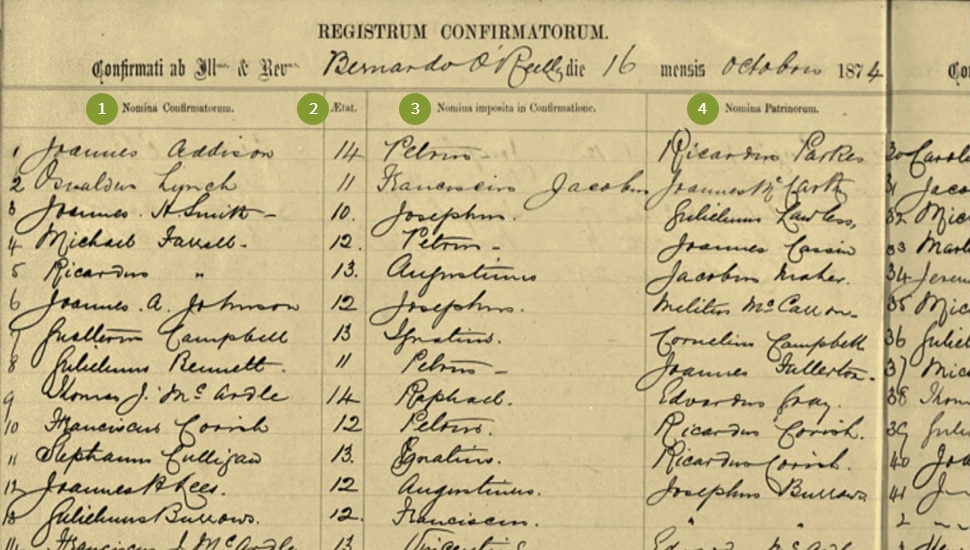 REGISTRUM CONFIRMATORUM.
Confirmati ab Ill & Rev Bernardo O'Reilly die 16 mensis Octobris 1874
1 Nomina Confirmatorum. 2 Ætat. 3 Nomina imposita in Confirmatione. 4 Nomina Patrinorum.
1 Joannes Addison 14 Petrus Ricardus Parkes 30
2 Osvaldus Lynch 11 Franciscus Jacobus Joannes Mc Carth 31 Jaco
3 Joannes. H Smith - 10. Josephus. Gulielmus Lawless, 32 Mic
4 Michael Farrell. 12. Petrus - Joannes Cassin 33
5 Ricardus " 13. Augustinus Jacobus Maher. 34
6 Joannes. A. Johnson 12 Josephus. 35 Mic
7 Campbell 13 Ignatius. Cornelius Campbell 36
8 Gulielmus Bennett. 11 Petrus - Joannes Fullerton. 37 Mic
9 Thomas J. Mc Ardle 14 Raphael. Edvardus Gray. 38 Thom
10 Franciscus Corish 12 Petrus. Ricardus Corish. 39
11 Stephanus Culligan 13. Ignatius. Ricardus Corish. 40
12 Joannes Lees. 12 Augustinus. Josephus Burrows 41
13 Gulielmus Burrows. 12. Franciscus. " "
14 Franciscus J Mc Ardle 13 Vincentius